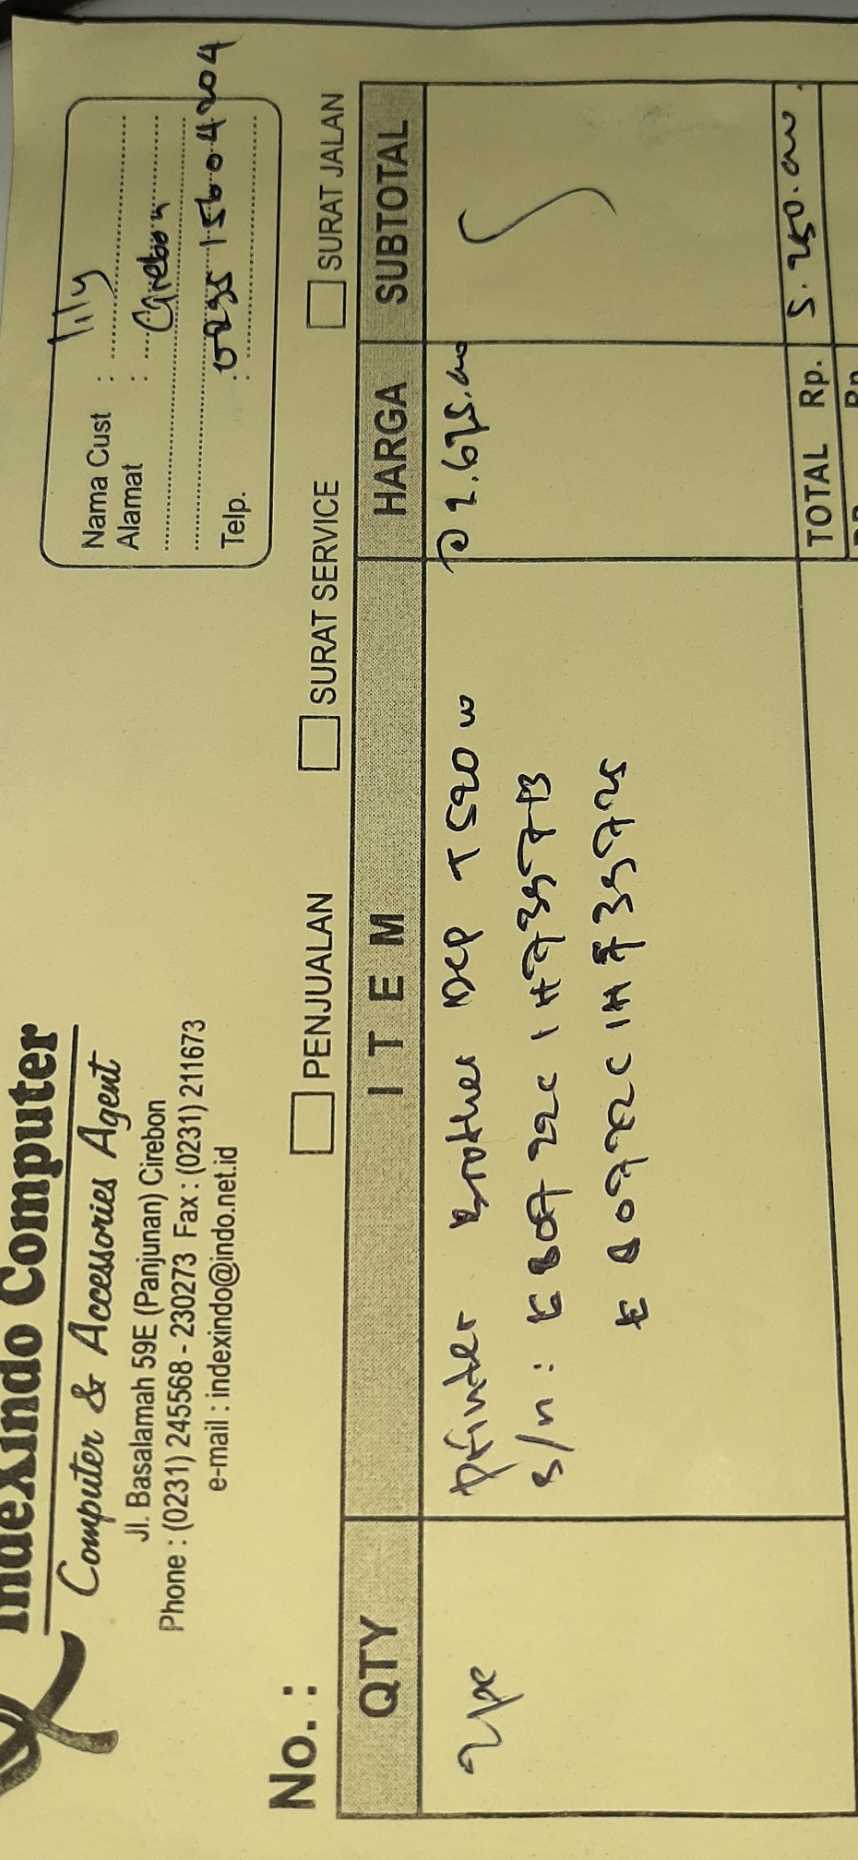 IndeXIndo Computer
Computer & Accessories Agent
Jl. Basalamah 59E (Panjunan) Cirebon
Phone : (0231) 245568 - 230273 Fax : (0231) 211673
e-mail : indexindo@indo.net.id
Nama Cust : lily
Alamat : Cirebon
Telp. :
No. :
PENJUALAN SURAT SERVICE SURAT JALAN
QTY ITEM HARGA SUBTOTAL
2pc Printer Brother DCP T520w
s/n :
TOTAL Rp. 5.250.000
Rp